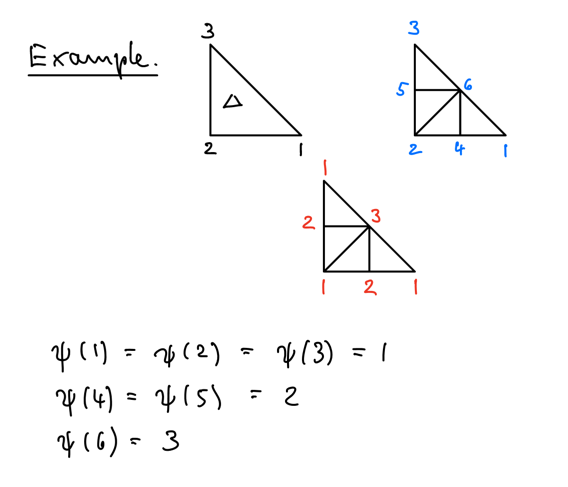 Example.
3
Δ
2 1
3
5 6
2 4 1
1
2 3
1 2 1
ψ(1) = ψ(2) = ψ(3) = 1
ψ(4) = ψ(5) = 2
ψ(6) = 3